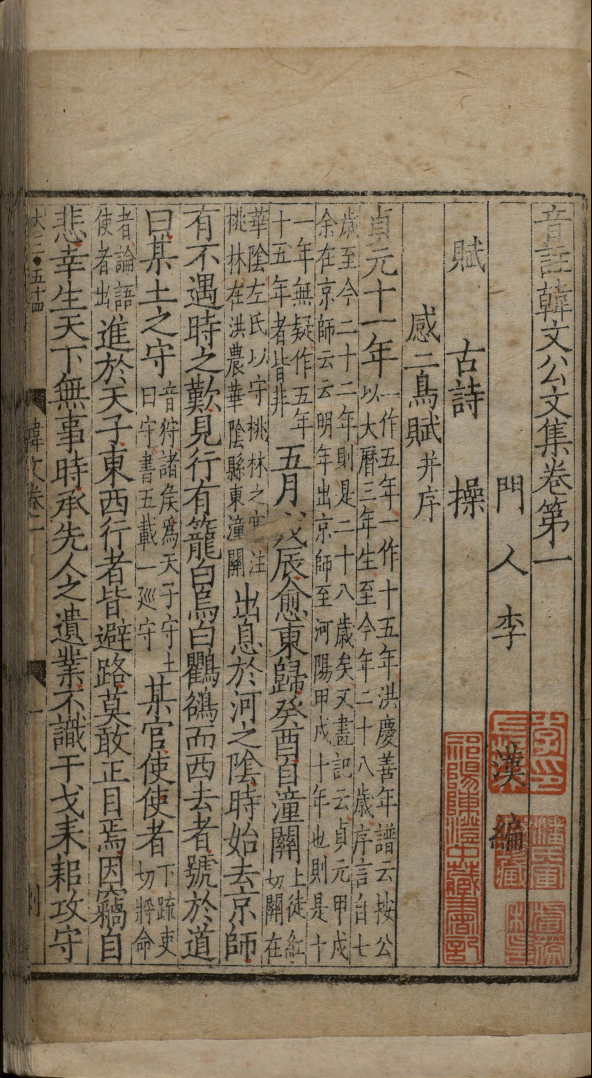 音註韓文公文集卷第一
門人李漢編
賦 古詩 操
感二鳥賦并序
貞元十一年
一作五年一作十五年洪慶善年譜云按公
以大曆三年生至今年二十八歲序言自七
歲至今二十二年則是二十八歲矣又畫記云貞元甲戌
余在京師云云明年出京師至河陽甲戌十年也則是十
一年無疑作五年
十五年者皆非
五月戊辰愈東歸癸酉自潼關
上徒紅
切關在
華陰左氏以守桃林之塞注
桃林在洪農華陰縣東潼關
出息於河之陰時始去京師
有不遇時之歎見行有籠白烏白鸜鵒而西去者號於道
曰某土之守
音狩諸侯爲天子守土
曰守書五載一廵守
某官使使者
下疏吏
切將命
者論語
使者出
進於天子東西行者皆避路莫敢正目焉因竊自
悲幸生天下無事時承先人之遺業不識干戈耒耜攻守
大三 五十四
韓文卷一
一
祁陽陳澄中藏書記